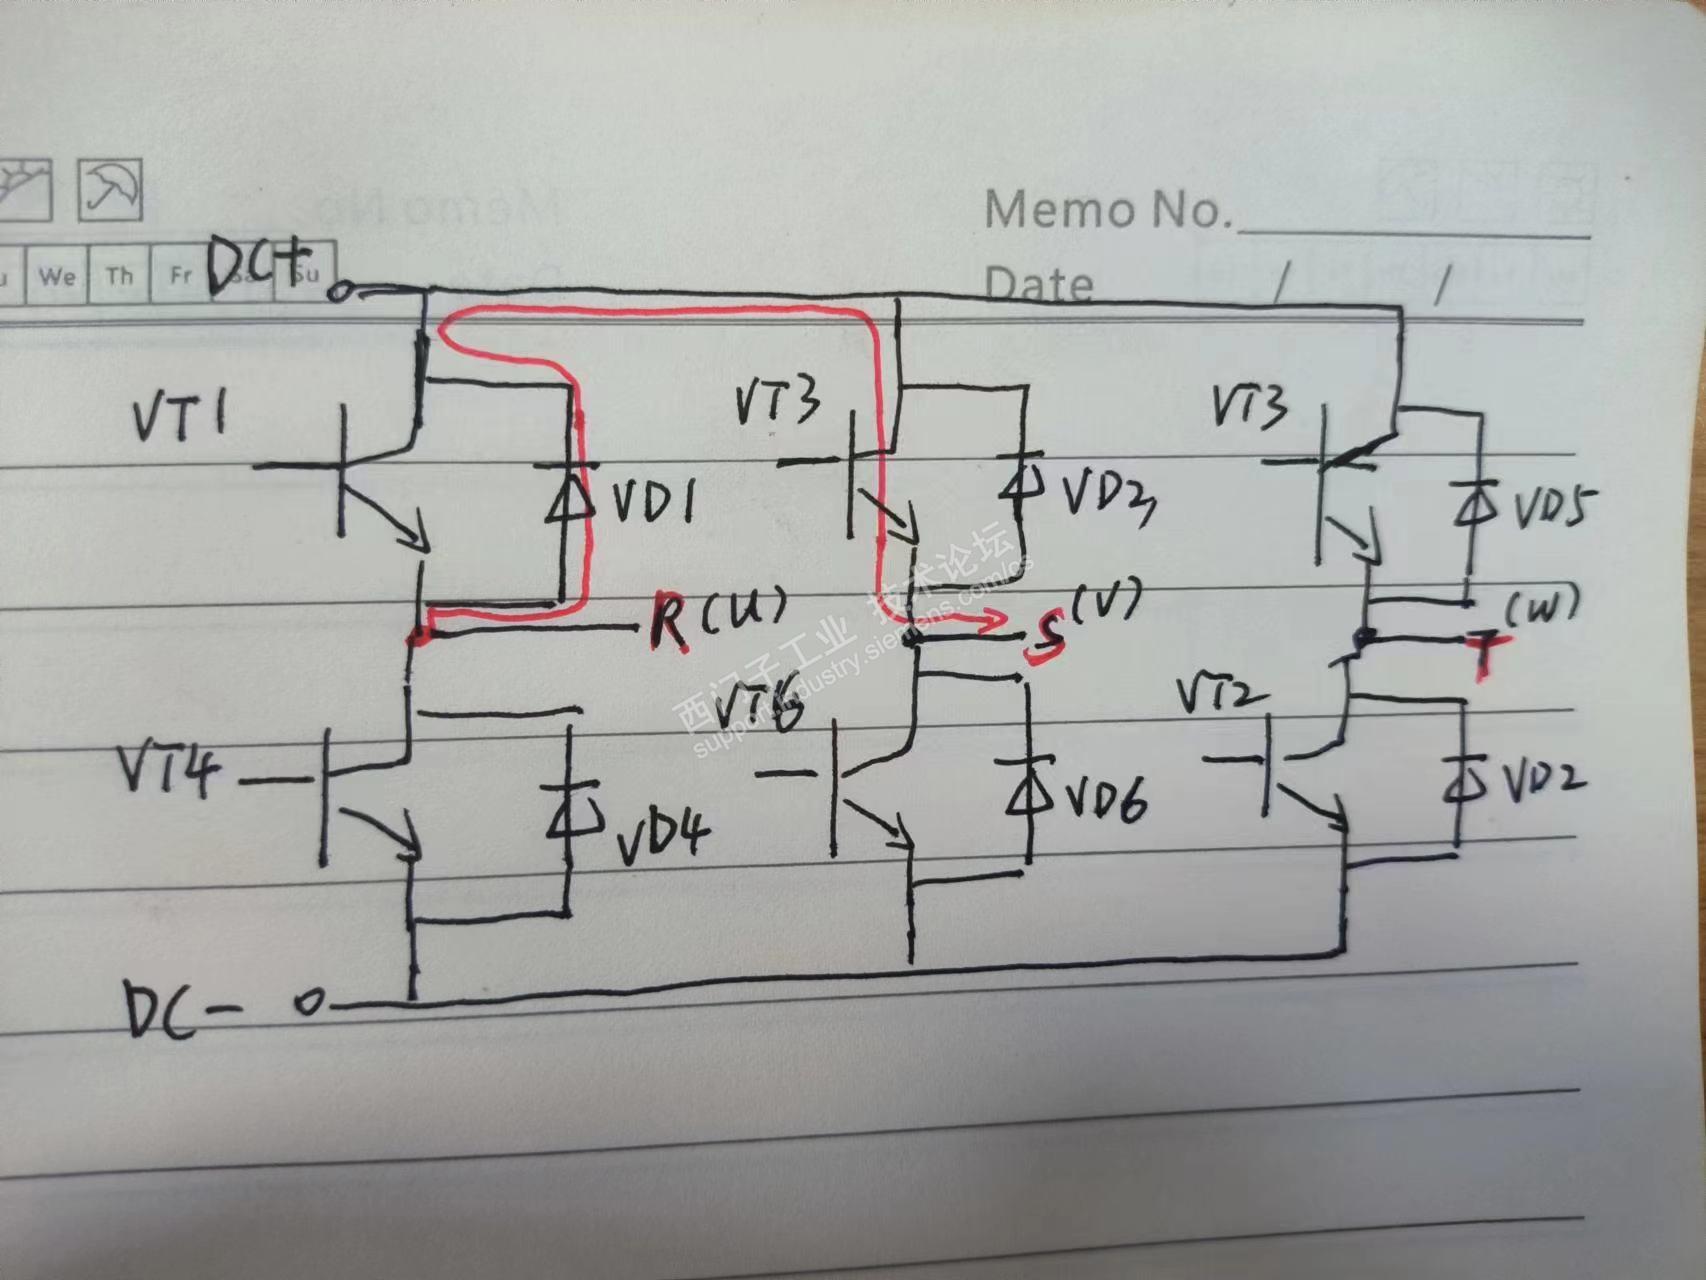 Memo No.
Date / /
We Th Fr Su
DC+
VT1 VD1 VT3 VD2, VT3 VD5
R (U) S (V) T (W)
VT4 VD4 VT6 VD6 VT2 VD2
DC- 
西门子工业 技术论坛
support.industry.siemens.com/cs